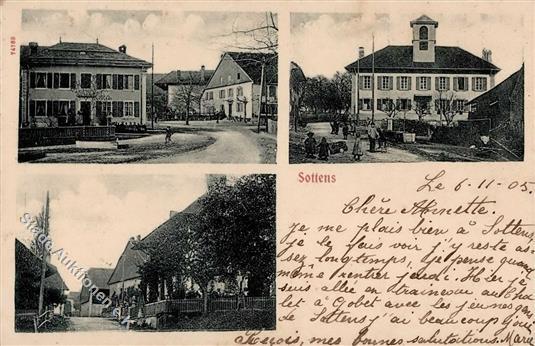 74189
Sottens
Le 6-11-05.
Chère Abinette.
Je me plais bien à Sottens
je le fais voir j'y reste as-
sez longtemps, je pense quand
même rentrer jeudi. Hier je
suis allée en traîneau au Cha
let à Gobet avec les jeunes gens
de Sottens j'ai beaucoup joui
Reçois, mes bonnes salutations. Marie
Stade Auktionen